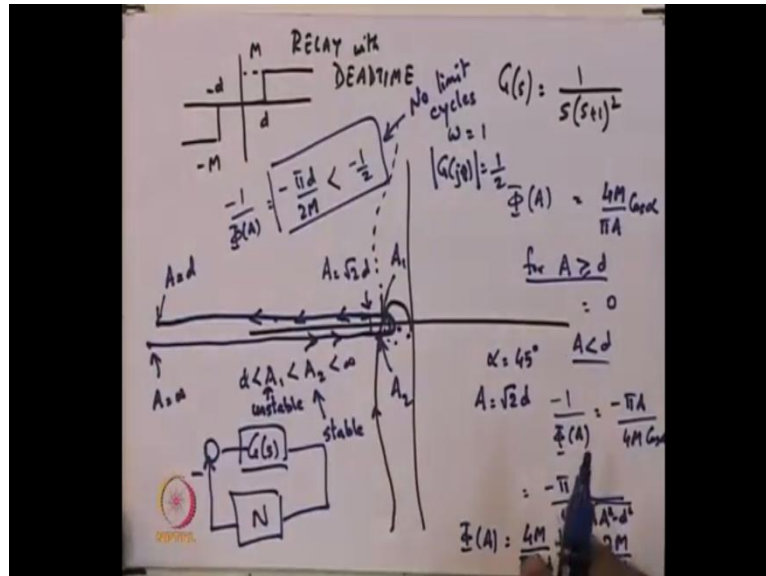 RELAY with
DEADTIME
M
-d
d
-M
G(s) = 1 / s(s+1)²
No limit
cycles
ω = 1
|G(jω)| = 1/2
-1/Φ(A) = -πd/2M < -1/2
Φ(A) = 4M/πA Cosα
for A ≥ d
= 0
A < d
A = d
A = √2d
A₁
A = ∞
d < A₁ < A₂ < ∞
unstable
stable
A₂
α = 45°
A = √2d
-1/Φ(A) = -πA/4M Cosα
= -π
A²-d²
Φ(A) = 4M
2M
G(s)
-
N
NPTEL